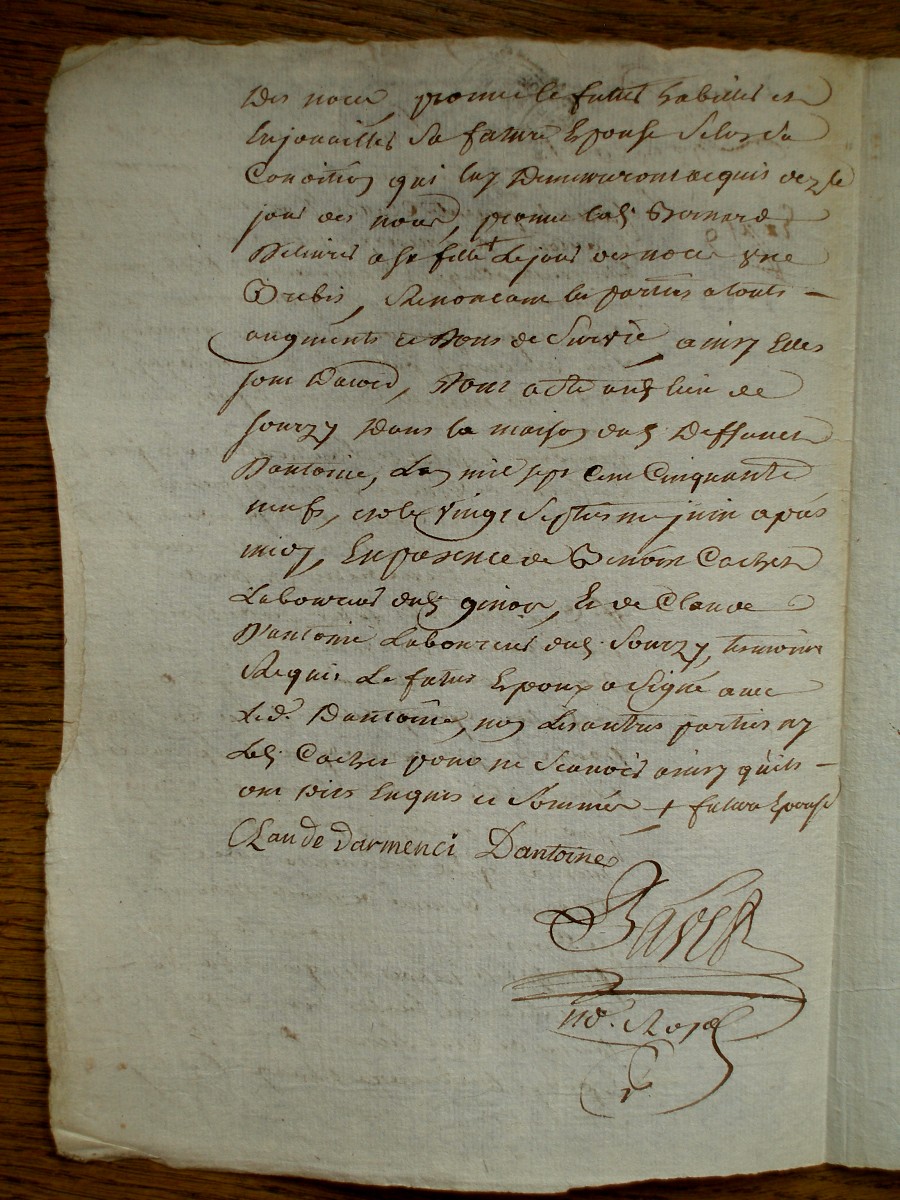 des noces, promet le futur habiller et
enjoailler sa future Epouse selon sa
Condition qui luy demeureront acquis dez le
jour des noces, promet led. Bernard
delivrer a sa fille + le jour des noces une
Brebis, Renoncant les parties a tout
augments et Dons de Survie ainsy Elles
sont Daccord, Dont acte aud. lieu de
Sourzy dans la maison dud. Deffunct
Dantoine, L'an mil sept Cent Cinquante
neuf, et le vingt Septieme juin apres
midy, En presence de Benoist Cachet
Laboureur dud. , Et de Claude
Dantoine Laboureur dud. Sourzy, temoins
Requis Le futur Epoux a Signé avec
Led. Dantoine, non Les autres parties ny
Led. Cachet pour ne Scavoir ainsy qu'ils
ont dit Enquis et Sommés + future Epouse
CLaude darmenci Dantoine

nore Royal